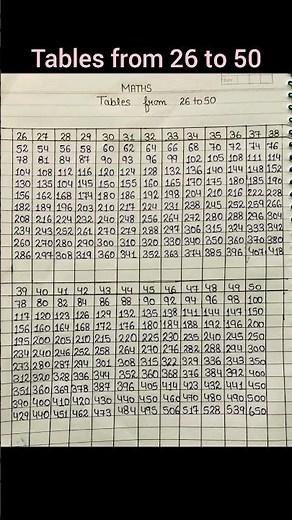 Tables from 26 to 50
MATHS
Tables from 26 to 50
26 27 28 29 30 31 32 33 34 35 36 37 38
52 54 56 58 60 62 64 66 68 70 72 74 76
78 81 84 87 90 93 96 99 102 105 108 111 114
104 108 112 116 120 124 128 132 136 140 144 148 152
130 135 104 145 150 155 160 165 170 175 180 185 190
156 162 168 174 180 186 192 198 204 210 216 222 228
182 189 196 203 210 217 224 231 238 245 252 259 266
208 216 224 232 240 248 256 264 272 280 288 296 304
234 243 252 261 270 279 288 297 306 315 324 333 342
260 270 280 290 300 310 320 330 340 350 360 370 380
286 297 308 319 360 341 352 363 374 385 396 407 418
39 40 41 42 43 44 45 46 47 48 49 50
78 80 82 84 86 88 90 92 94 96 98 100
117 120 123 126 129 132 135 138 141 144 147 150
156 160 164 168 172 176 180 184 188 192 196 200
195 200 205 210 215 220 225 230 235 240 245 250
234 240 246 252 258 264 270 276 282 288 294 300
273 280 287 294 301 308 315 322 329 336 343 350
312 320 328 336 344 352 360 368 376 384 392 400
351 360 369 378 387 396 405 414 423 432 441 450
390 400 410 420 430 440 450 460 470 480 490 500
429 440 451 462 473 484 495 506 517 528 539 650